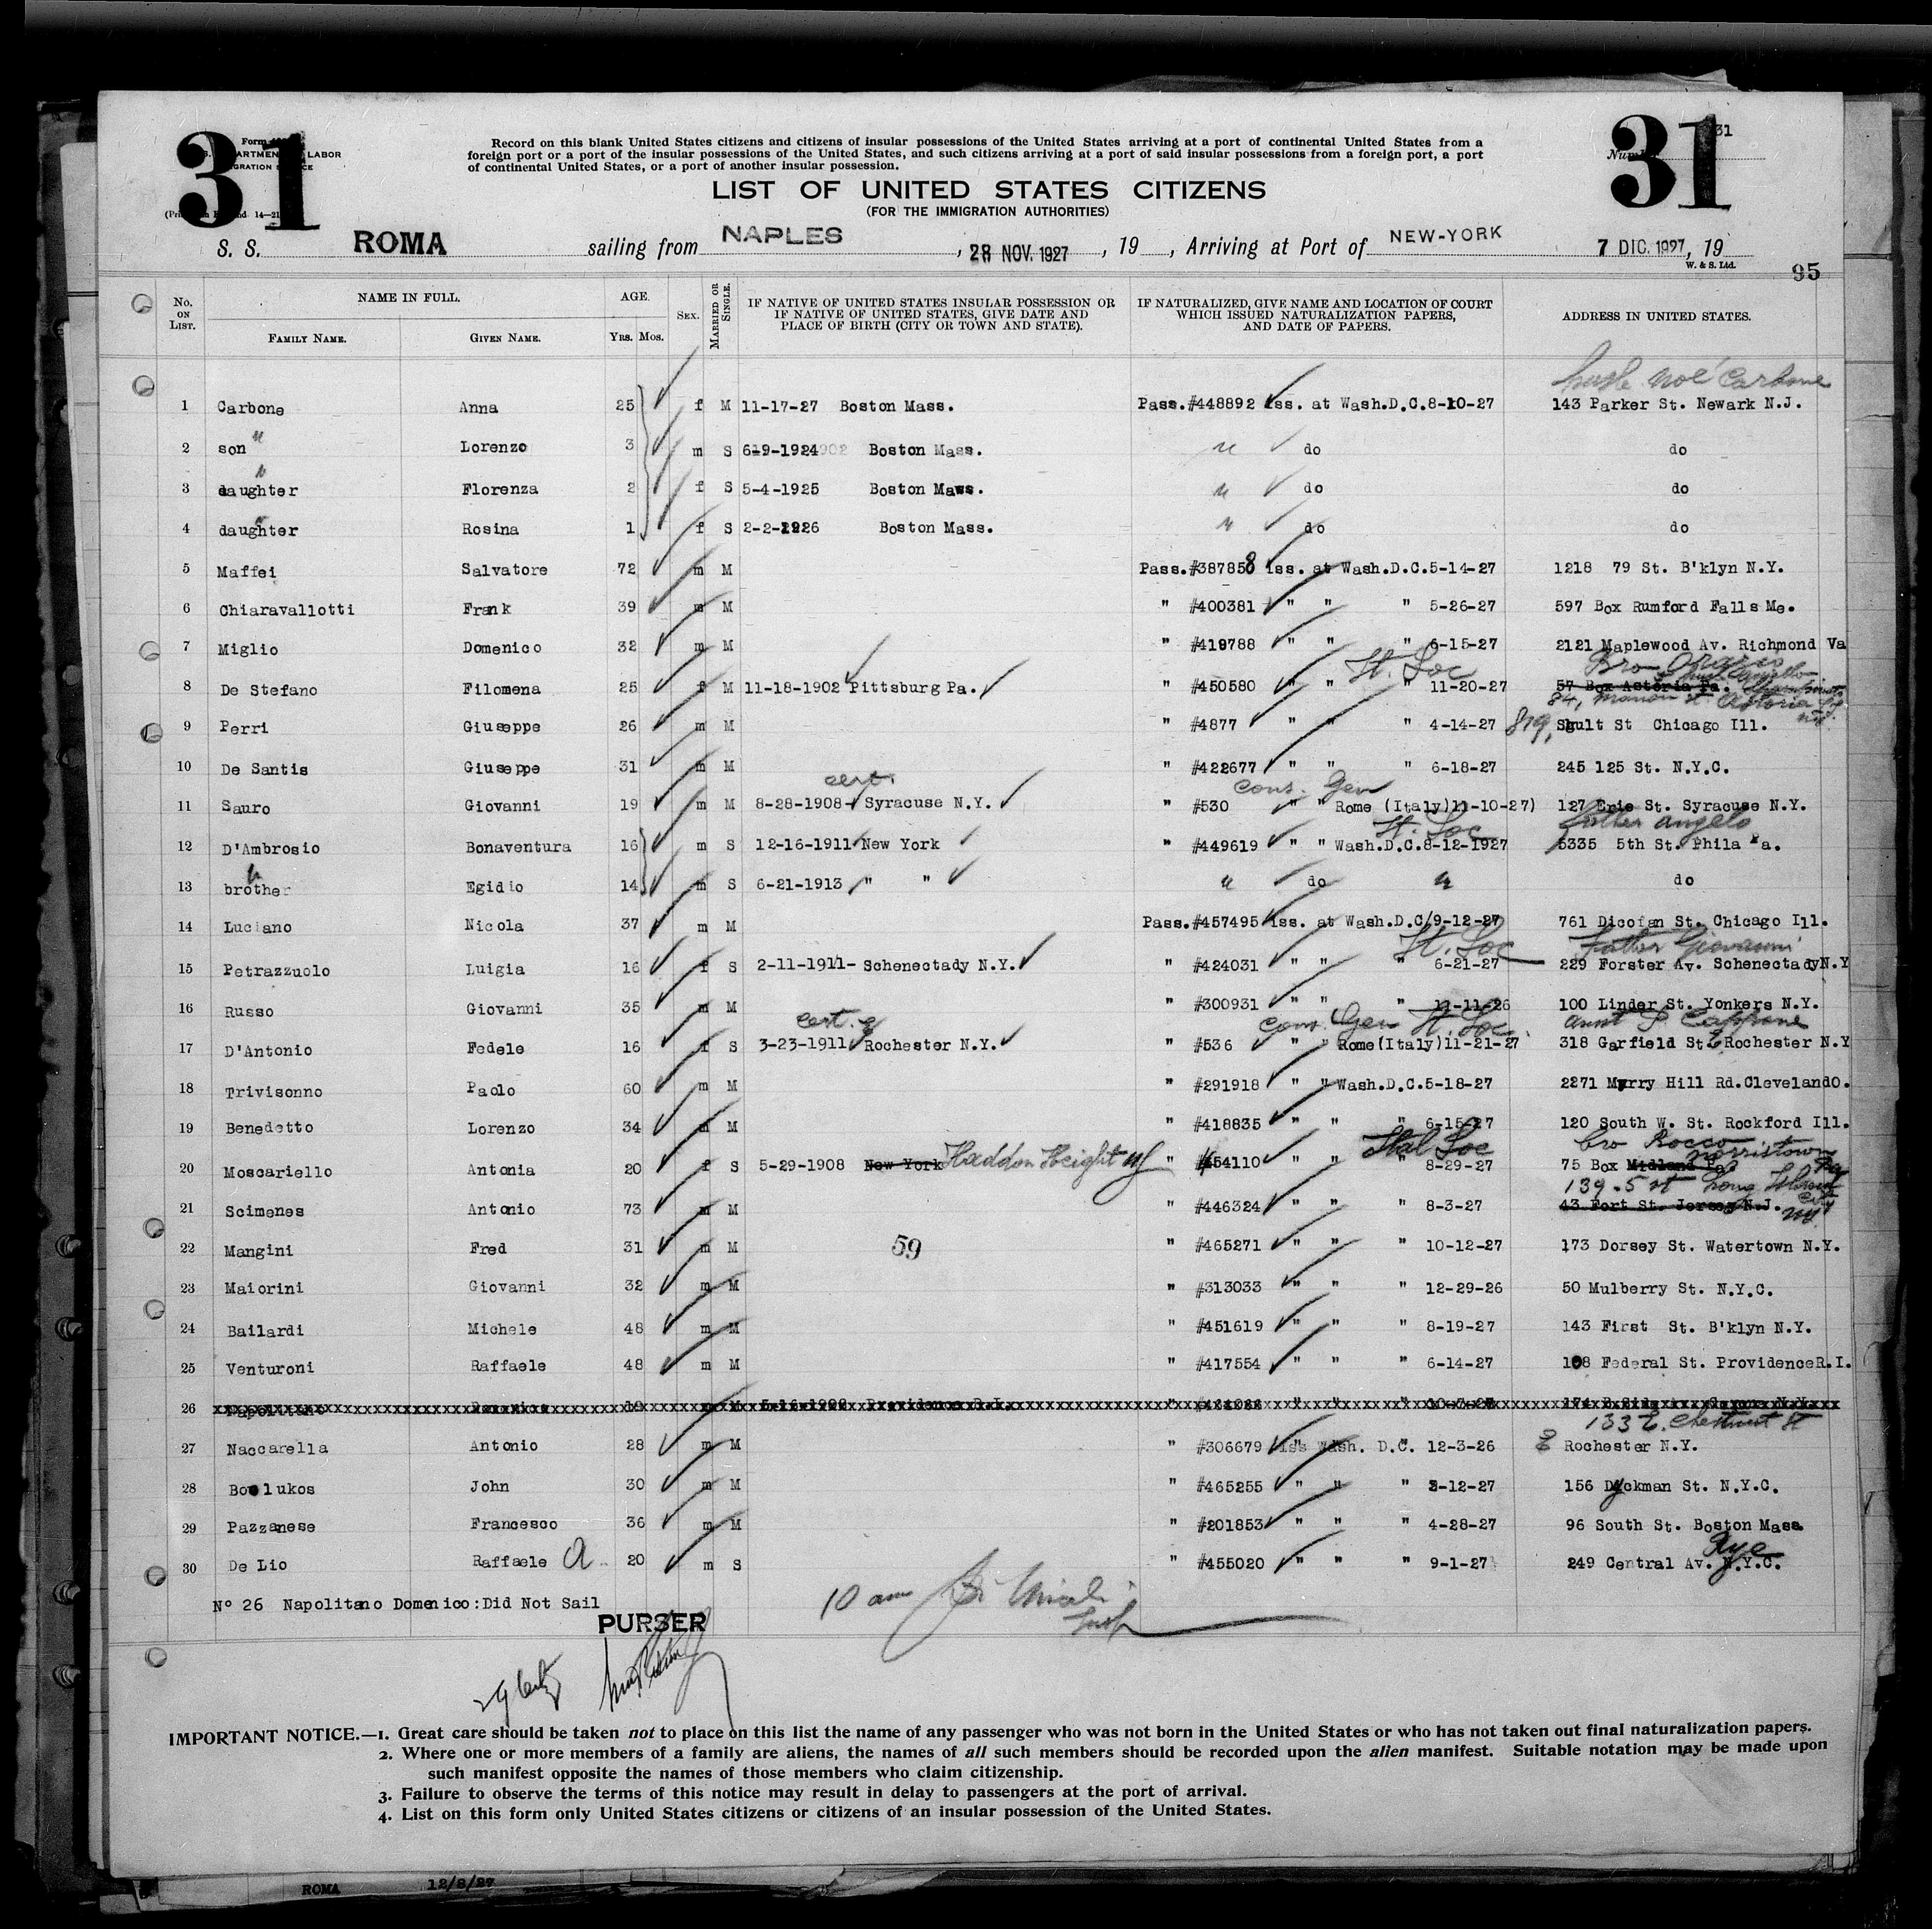 31
31
31
Record on this blank United States citizens and citizens of insular possessions of the United States arriving at a port of continental United States from a
foreign port or a port of the insular possessions of the United States, and such citizens arriving at a port of said insular possessions from a foreign port, a port
of continental United States, or a port of another insular possession.
LIST OF UNITED STATES CITIZENS
(FOR THE IMMIGRATION AUTHORITIES)
S. S. ROMA sailing from NAPLES, 28 NOV. 1927, 19 , Arriving at Port of NEW-YORK 7 DIC. 1927, 19
W. & S. Ltd.
95
No. ON LIST. NAME IN FULL. AGE. SEX. MARRIED OR SINGLE. IF NATIVE OF UNITED STATES INSULAR POSSESSION OR IF NATIVE OF UNITED STATES, GIVE DATE AND PLACE OF BIRTH (CITY OR TOWN AND STATE). IF NATURALIZED, GIVE NAME AND LOCATION OF COURT WHICH ISSUED NATURALIZATION PAPERS, AND DATE OF PAPERS. ADDRESS IN UNITED STATES.
FAMILY NAME. GIVEN NAME. YRS. MOS.
Noé Carbone
1 Carbone Anna 25 f M 11-17-27 Boston Mass. Pass.#448892 iss. at Wash.D.C.8-10-27 143 Parker St. Newark N.J.
2 son " Lorenzo 3 m S 6-9-1924 Boston Mass. " do do
3 daughter " Florenza 2 f S 5-4-1925 Boston Maws. " do do
4 daughter " Rosina 1 f S 2-2-1926 Boston Mass. " do do
5 Maffei Salvatore 72 m M Pass.#387858 iss. at Wash.D.C.5-14-27 1218 79 St. B'klyn N.Y.
6 Chiaravallotti Frank 39 m M " #400381 " " " 5-26-27 597 Box Rumford Falls Me.
7 Miglio Domenico 32 m M " #419788 " " " 6-15-27 2121 Maplewood Av. Richmond Va
St. Loc Bro
8 De Stefano Filomena 25 f M 11-18-1902 Pittsburg Pa. " #450580 " " " 11-20-27 57 Box Astoria Pa.
84, Astoria
9 Perri Giuseppe 26 m M " #4877 " " " 4-14-27 819, Sgult St Chicago Ill.
10 De Santis Giuseppe 31 m M " #422677 " " " 6-18-27 245 125 St. N.Y.C.
cert. Cons. Gen
11 Sauro Giovanni 19 m M 8-28-1908- Syracuse N.Y. " #530 " " Rome (Italy)11-10-27) 127 Erie St. Syracuse N.Y.
St. Loc father angelo
12 D'Ambrosio Bonaventura 16 m S 12-16-1911 New York " #449619 " " Wash.D.C.8-12-1927 5335 5th St. Phila Pa.
13 brother " Egidio 14 m S 6-21-1913 " " " do " do
14 Luciano Nicola 37 m M Pass.#457495 iss. at Wash.D.C/9-12-27 761 Dicofan St. Chicago Ill.
St. Loc Father Giovanni
15 Petrazzuolo Luigia 16 f S 2-11-1911- Schenectady N.Y. " #424031 " " " 6-21-27 229 Forster Av. Schenectady N.Y
16 Russo Giovanni 35 m M " #300931 " " " 11-11-26 100 Linder St. Yonkers N.Y.
cert. Cons. Gen St. Loc. aunt
17 D'Antonio Fedele 16 f S 3-23-1911 Rochester N.Y. " #536 " " Rome(Italy)11-21-27 318 Garfield St Rochester N.Y
18 Trivisonno Paolo 60 m M " #291918 " " Wash.D.C.5-18-27 2271 Myrry Hill Rd.Cleveland O.
19 Benedetto Lorenzo 34 m M " #418835 " " " 6-15-27 120 South W. St. Rockford Ill.
Stal Loc bro Rocco
20 Moscariello Antonia 20 f S 5-29-1908 New York Haddon Height NJ " #454110 " " " 8-29-27 75 Box Midland Pa. Norristown Pa
139-5 st Long Island City NY
21 Scimenes Antonio 73 m M " #446324 " " " 8-3-27 43 Fort St. Jersey N.J.
22 Mangini Fred 31 m M 59 " #465271 " " " 10-12-27 173 Dorsey St. Watertown N.Y.
23 Maiorini Giovanni 32 m M " #313033 " " " 12-29-26 50 Mulberry St. N.Y.C.
24 Bailardi Michele 48 m M " #451619 " " " 8-19-27 143 First St. B'klyn N.Y.
25 Venturoni Raffaele 48 m M " #417554 " " " 6-14-27 108 Federal St. Providence R.I.
26 Napolitano Domenico 19 m M Providence R.I.
133 E. Chestnut St
27 Naccarella Antonio 28 m M " #306679 iss Wash. D.C. 12-3-26 Rochester N.Y.
28 Bo lukos John 30 m M " #465255 " " " 8-12-27 156 Dyckman St. N.Y.C.
29 Pazzanese Francesco 36 m M " #201853 " " " 4-28-27 96 South St. Boston Mass
30 De Lio Raffaele A 20 m S " #455020 " " " 9-1-27 249 Central Av. N.Y.C. Rye
Nº 26 Napolitano Domenico:Did Not Sail
PURSER
10 am
IMPORTANT NOTICE.—1. Great care should be taken not to place on this list the name of any passenger who was not born in the United States or who has not taken out final naturalization papers.
2. Where one or more members of a family are aliens, the names of all such members should be recorded upon the alien manifest. Suitable notation may be made upon
such manifest opposite the names of those members who claim citizenship.
3. Failure to observe the terms of this notice may result in delay to passengers at the port of arrival.
4. List on this form only United States citizens or citizens of an insular possession of the United States.
ROMA 12/8/27